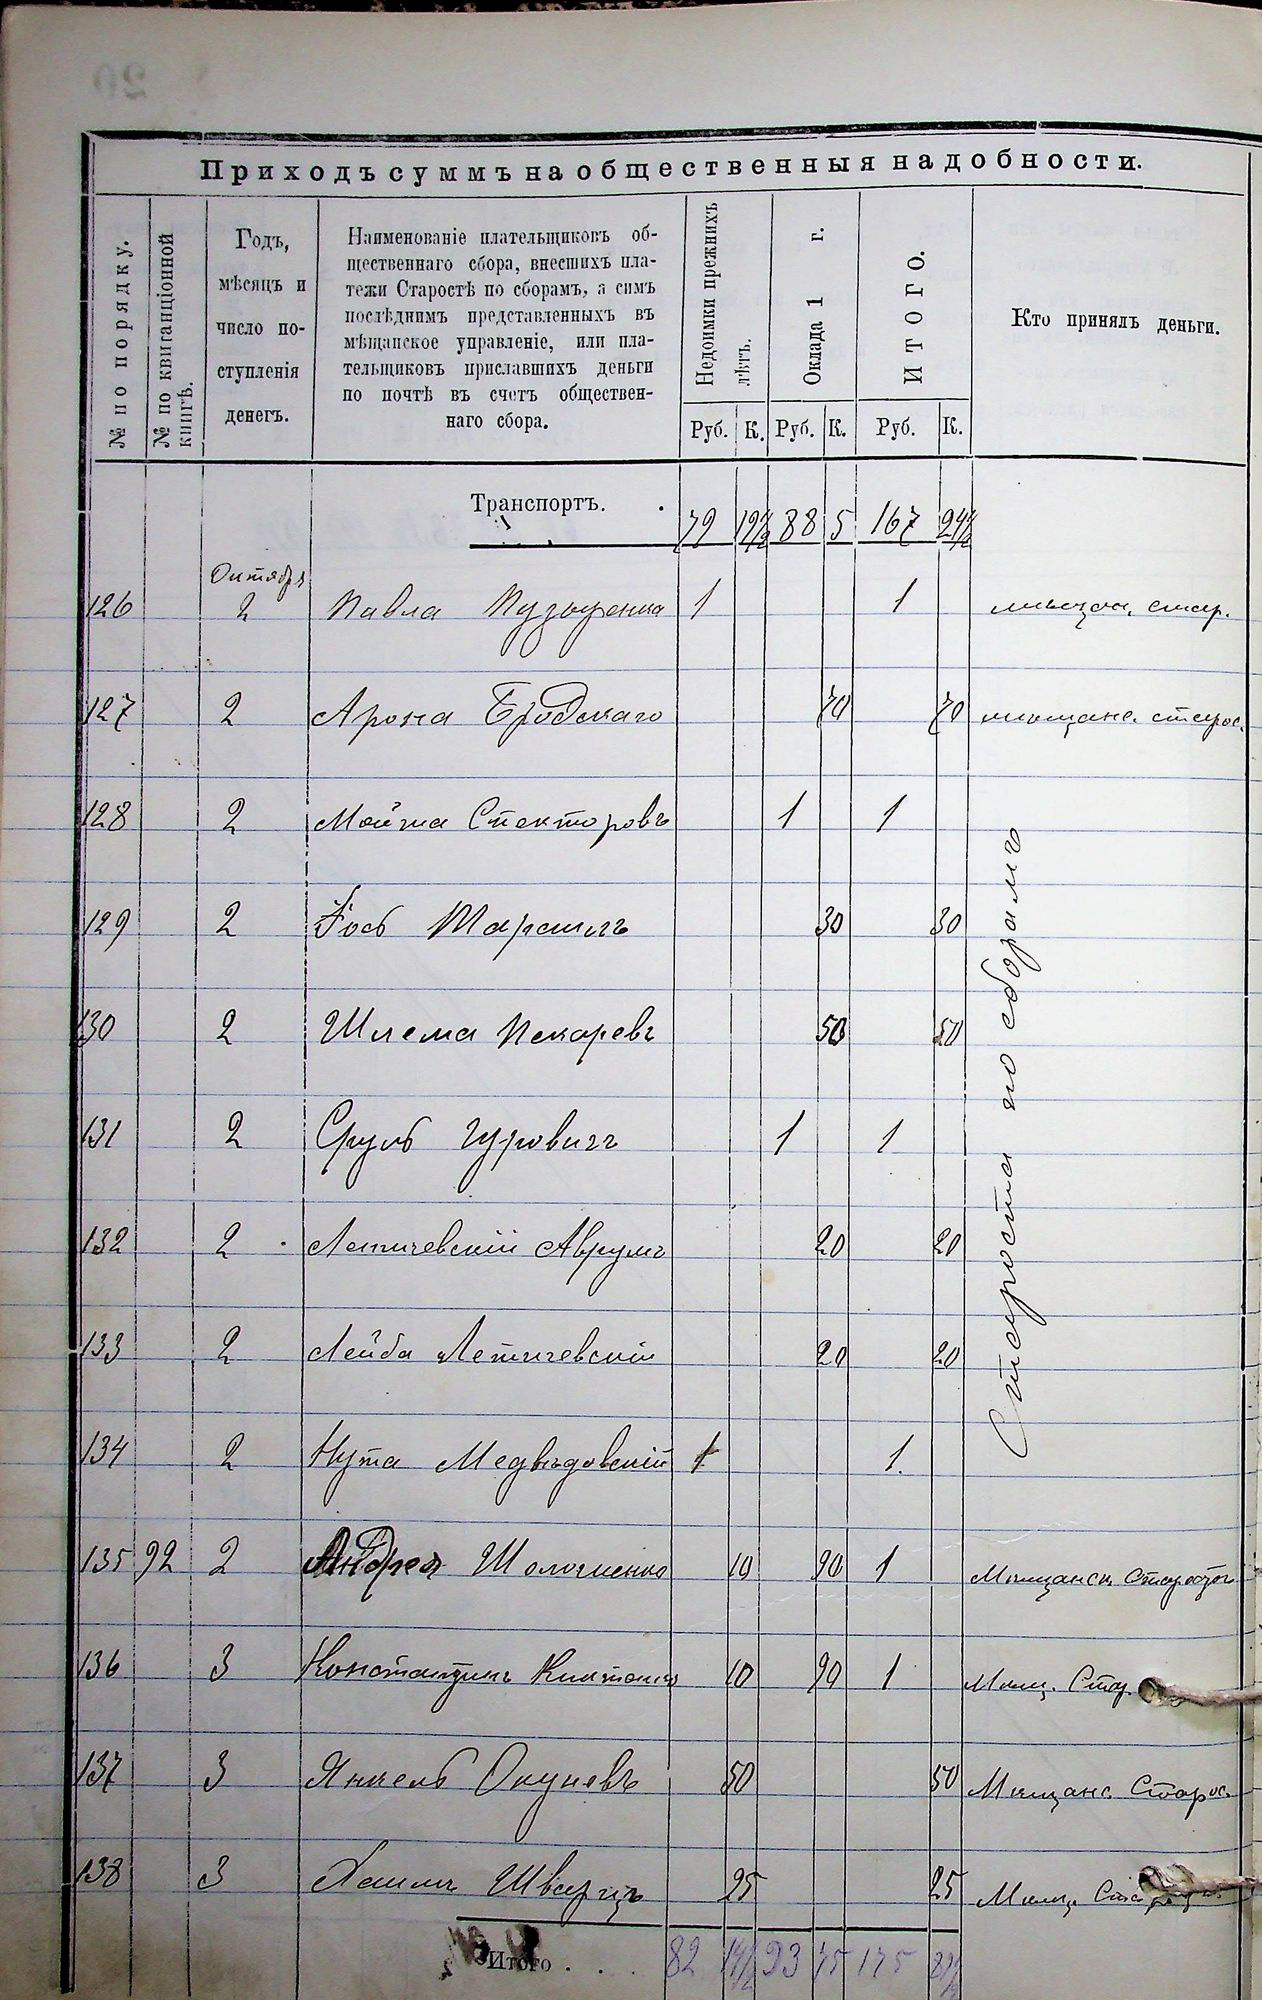 Приходъ суммъ на общественныя надобности.
№ по порядку.
№ по квитанціонной книгѣ.
Годъ,
мѣсяцъ и
число по-
ступленія
денегъ.
Наименованіе плательщиковъ об-
щественнаго сбора, внесшихъ пла-
тежи Старостѣ по сборамъ, а симъ
послѣднимъ представленныхъ въ
мѣщанское управленіе, или пла-
тельщиковъ приславшихъ деньги
по почтѣ въ счетъ обществен-
наго сбора.
Недоимки прежнихъ лѣтъ.
Оклада 1 г.
ИТОГО.
Кто принялъ деньги.
Руб. К. Руб. К. Руб. К.
Транспортъ. . 79 19½ 88 5 167 24½
Октября
126 2 Павла 1 1 мѣщан. стар.
127 2 Арона Бродскаго 70 70 мѣщанс. старос.
128 2 Мойша Спекторовъ 1 1
129 2 Іось 30 30
130 2 Шлема Пекаревъ 50 50
131 2 Сруль Гуровичъ 1 1
132 2 Летичевскій Аврумъ 20 20
133 2 Лейба Летичевскій 20 20
134 2 Нута Медвѣдовскій 1 1.
Староста по сборамъ
135 92 2 Андрея 10 90 1 Мѣщанск. Старостою
136 3 Константинъ 10 90 1 Мѣщ. Стар.
137 3 Янкель Окуневъ 50 50 Мѣщанс. Старос.
138 3 Хаимъ Шварцъ 25 25 Мѣщ.
Итого . . . 82 14½ 93 75 175 89½